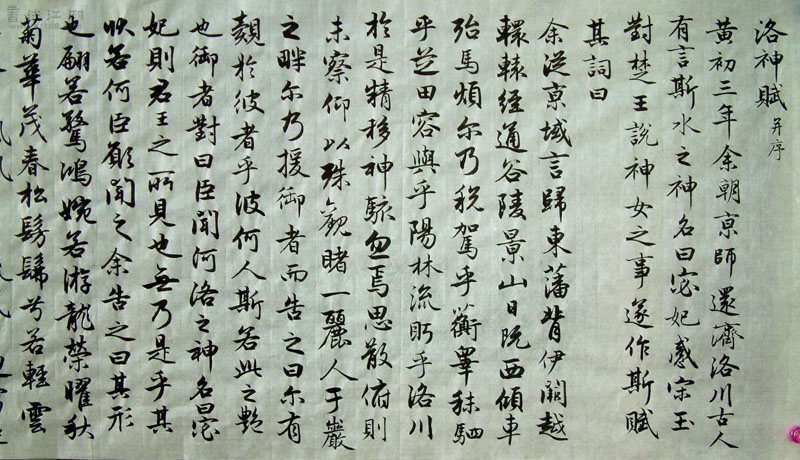 洛神賦 并序
黄初三年余朝京師還濟洛川古人
有言斯水之神名曰宓妃感宋玉
對楚王說神女之事遂作斯賦
其詞曰
余從京域言歸東藩背伊闕越
轘轅經通谷陵景山日既西傾車
殆馬煩尔乃稅駕乎蘅皋秣駟
乎芝田容與乎陽林流眄乎洛川
於是精移神駭忽焉思散俯則
未察仰以殊觀睹一麗人于巖
之畔尔乃援御者而告之曰尔有
覿於彼者乎彼何人斯若此之艷
也御者對曰臣聞河洛之神名曰宓
妃則君王之所見也無乃是乎其
狀若何臣願聞之余告之曰其形
也翩若驚鴻婉若游龍榮曜秋
菊華茂春松髣髴兮若輕雲